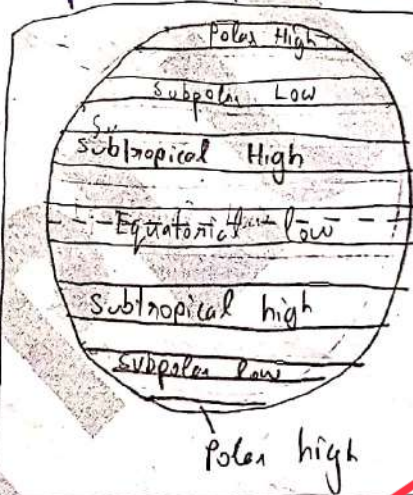 Polar High
Subpolar Low
Su
Subtropical High
Equatorical low
Subtropical high
Subpolar low
Polar high